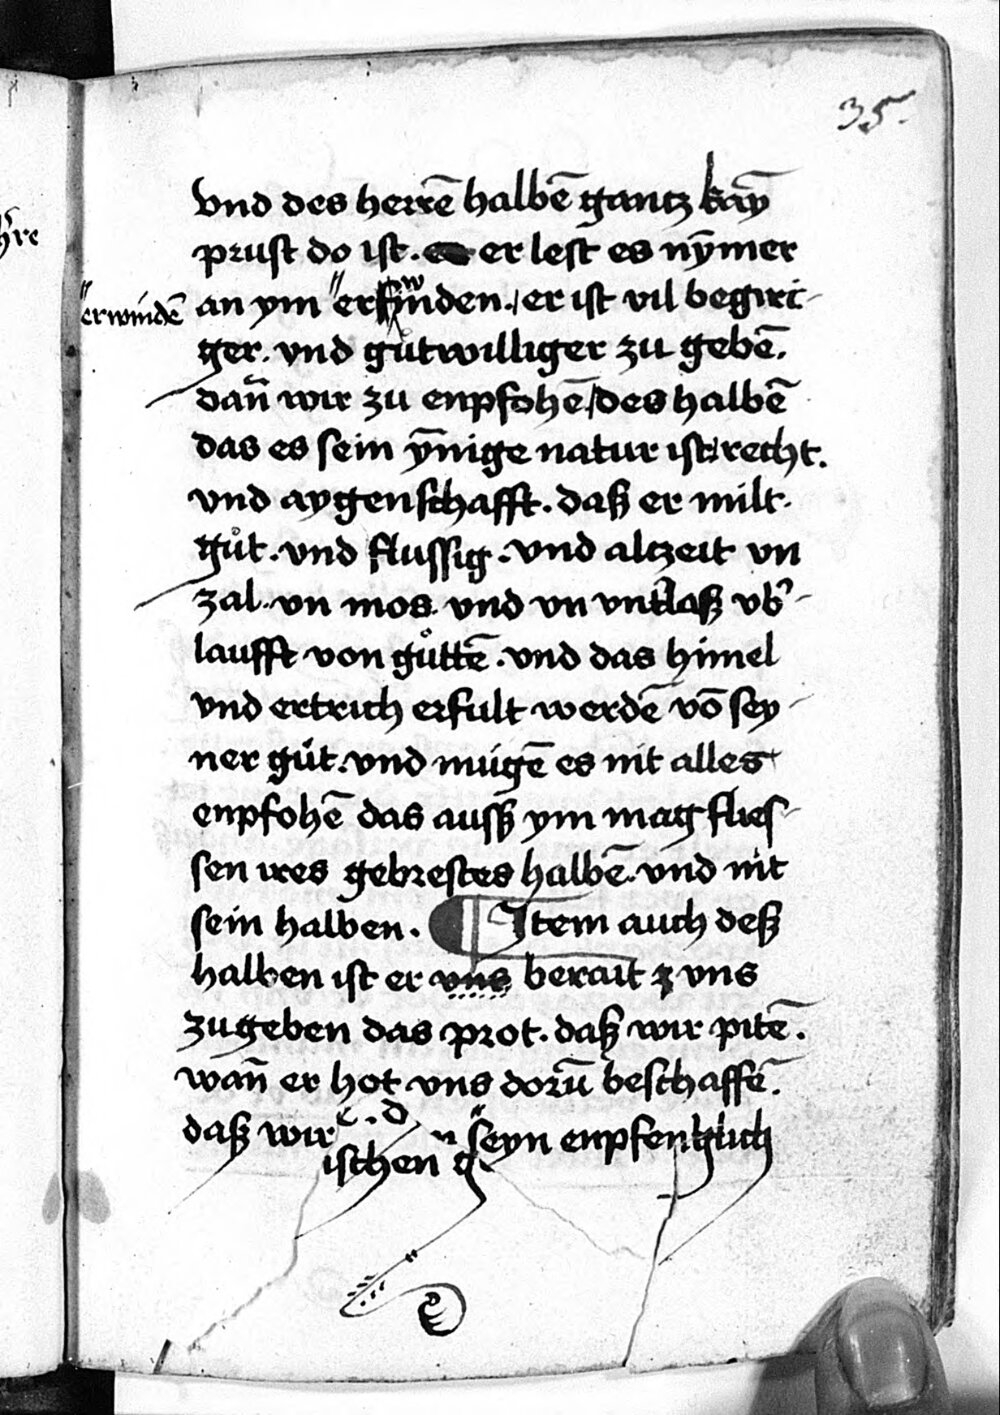 35.
vnd des herrē halbē gantz kaȳ
prust do ist. er lest es nȳmer
an ym erwinden. er ist vil begiri-
erwindē
ger. vnd gůtwilliger zu gebē.
dan̄ wir zu enpfohē/des halbē
das es sein ȳnige natur ist recht.
vnd aygenschafft. daß er milt.
gůt. vnd flussig. vnd altzeit vn
zal. vn mos. vnd vn vntlaß vb̓-
laufft von gůttē. vnd das himel
vnd ertrich erfult werdē vō sey-
ner gůt. vnd mügē es nit alles
enpfohē das ausß ym mag flies-
sen ires gebrestes halbē. vnd nit
sein halben. Item auch deß
halben ist er vns berait z vns
zugeben das prot. daß wir pitē.
wan̄ er hot vns dorū beschaffē.
daß wir seyn enpfenglich
ischen